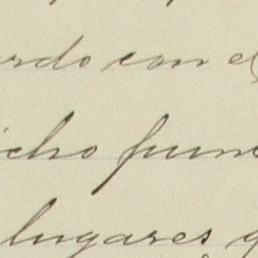 rdo con e
icho func
lugares q